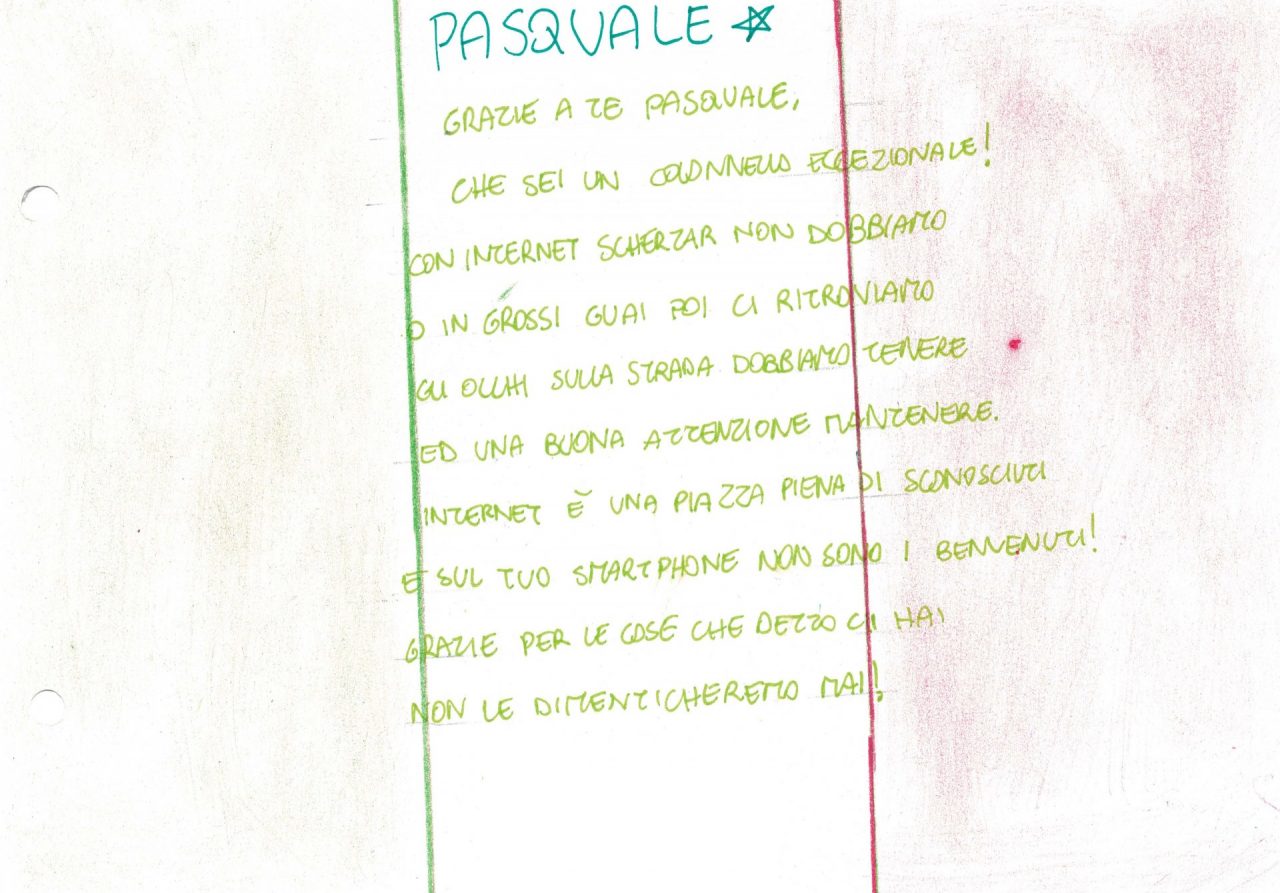 PASQUALE
GRAZIE A TE PASQUALE,
CHE SEI UN COLONNELLO ECCEZIONALE!
CON INTERNET SCHERZAR NON DOBBIAMO
O IN GROSSI GUAI POI CI RITROVIAMO
GLI OCCHI SULLA STRADA DOBBIAMO TENERE
ED UNA BUONA ATTENZIONE MANTENERE.
INTERNET È UNA PIAZZA PIENA DI SCONOSCIUTI
E SUL TUO SMARTPHONE NON SONO I BENVENUTI!
GRAZIE PER LE COSE CHE DETTO CI HAI
NON LE DIMENTICHEREMO MAI!